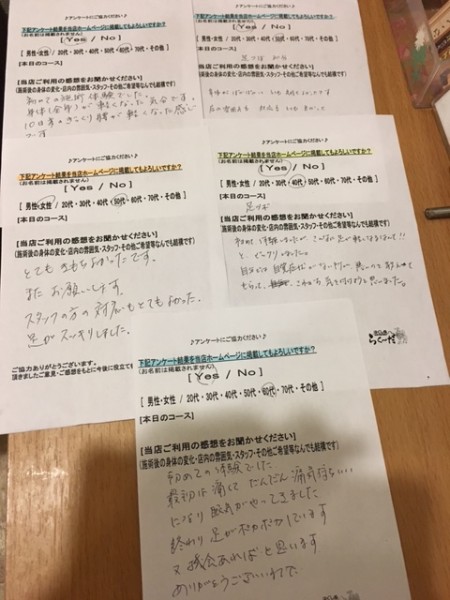 ♪アンケートにご協力ください♪
下記アンケート結果を当店ホームページに掲載してもよろしいですか?
(お名前は掲載されません)
[ Yes / No ]
[ 男性・女性 / 20代・30代・40代・50代・60代・70代・その他 ]
[本日のコース]
[当店ご利用の感想をお聞かせください]
(施術後の身体の変化・店内の雰囲気・スタッフ・その他ご希望等なんでも結構です)
初めての施術体験でした。
身体(全部)が軽くなった気分です。
10日来のぎっくり腰が軽くなった感じ
です
下記アンケート結果を当店ホームページに掲載してもよろしいですか?
(お名前は掲載されません)
[ Yes / No ]
[ 男性・女性 / 20代・30代・40代・50代・60代・70代・その他 ]
[本日のコース]
足つぼ
[当店ご利用の感想をお聞かせください]
(施術後の身体の変化・店内の雰囲気・スタッフ・その他ご希望等なんでも結構です)
♪アンケートにご協力ください♪
下記アンケート結果を当店ホームページに掲載してもよろしいですか?
(お名前は掲載されません)
[ Yes / No ]
[ 男性・女性 / 20代・30代・40代・50代・60代・70代・その他 ]
[本日のコース]
[当店ご利用の感想をお聞かせください]
(施術後の身体の変化・店内の雰囲気・スタッフ・その他ご希望等なんでも結構です)
とても気持ちよかったです。
またお願いします。
スタッフの方の対応もとてもよかった。
足がスッキリしました。
ご協力ありがとうございました。
頂きましたご意見・ご感想をもとに今後に役立て
♪アンケートにご協力ください♪
下記アンケート結果を当店ホームページに掲載してもよろしいですか?
(お名前は掲載されません)
[ Yes / No ]
[ 男性・女性 / 20代・30代・40代・50代・60代・70代・その他 ]
[本日のコース]
足つぼ
[当店ご利用の感想をお聞かせください]
(施術後の身体の変化・店内の雰囲気・スタッフ・その他ご希望等なんでも結構です)
初めて体験しましたが こんなに足が軽くなるなんて!!
と、ビックリしました。
らくーだ
♪アンケートにご協力ください♪
下記アンケート結果を当店ホームページに掲載してもよろしいですか?
(お名前は掲載されません)
[ Yes / No ]
[ 男性・女性 / 20代・30代・40代・50代・60代・70代・その他 ]
[本日のコース]
[当店ご利用の感想をお聞かせください]
(施術後の身体の変化・店内の雰囲気・スタッフ・その他ご希望等なんでも結構です)
初めての体験でした
最初は痛くて だんだん痛気持ちいい
になり 眠気がやってきました
終わり 足がポカポカしています
又機会あればと思います
ありがとうございました